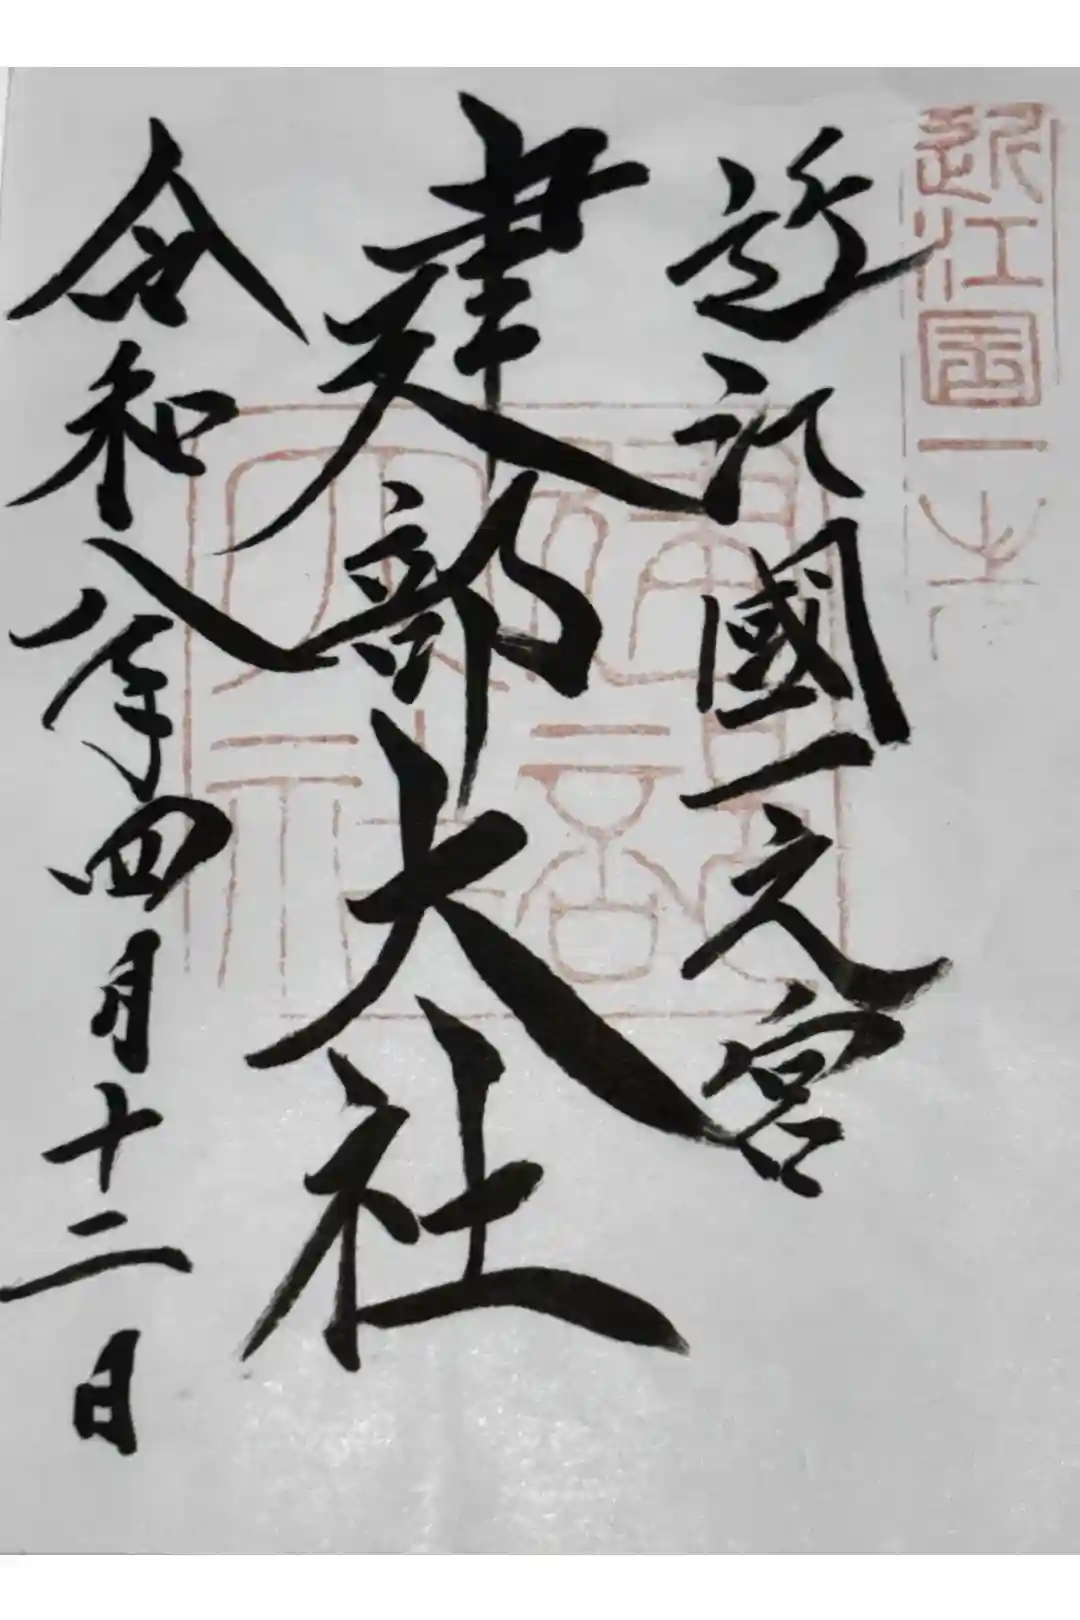 近江國一之宮
建部大社
令和八年四月十二日
近江国一之宮
建部大社